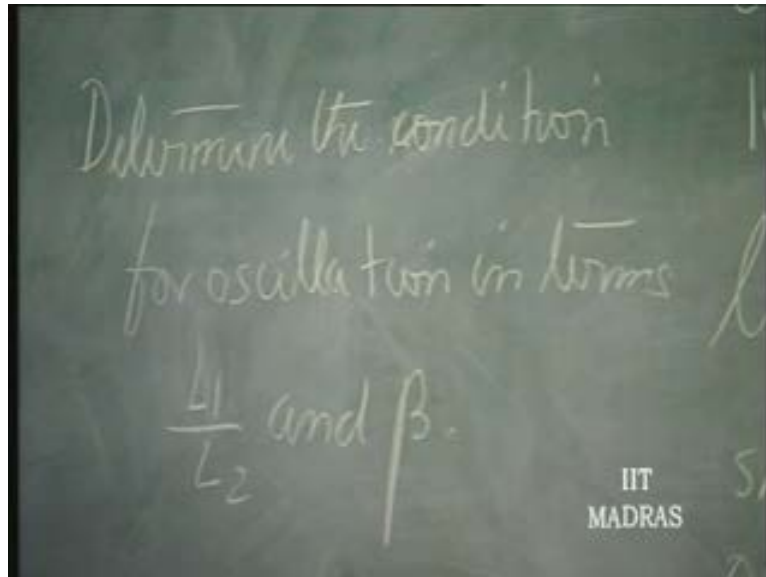 Determine the condition
for oscillation in terms
L1/L2 and β.
IIT
MADRAS